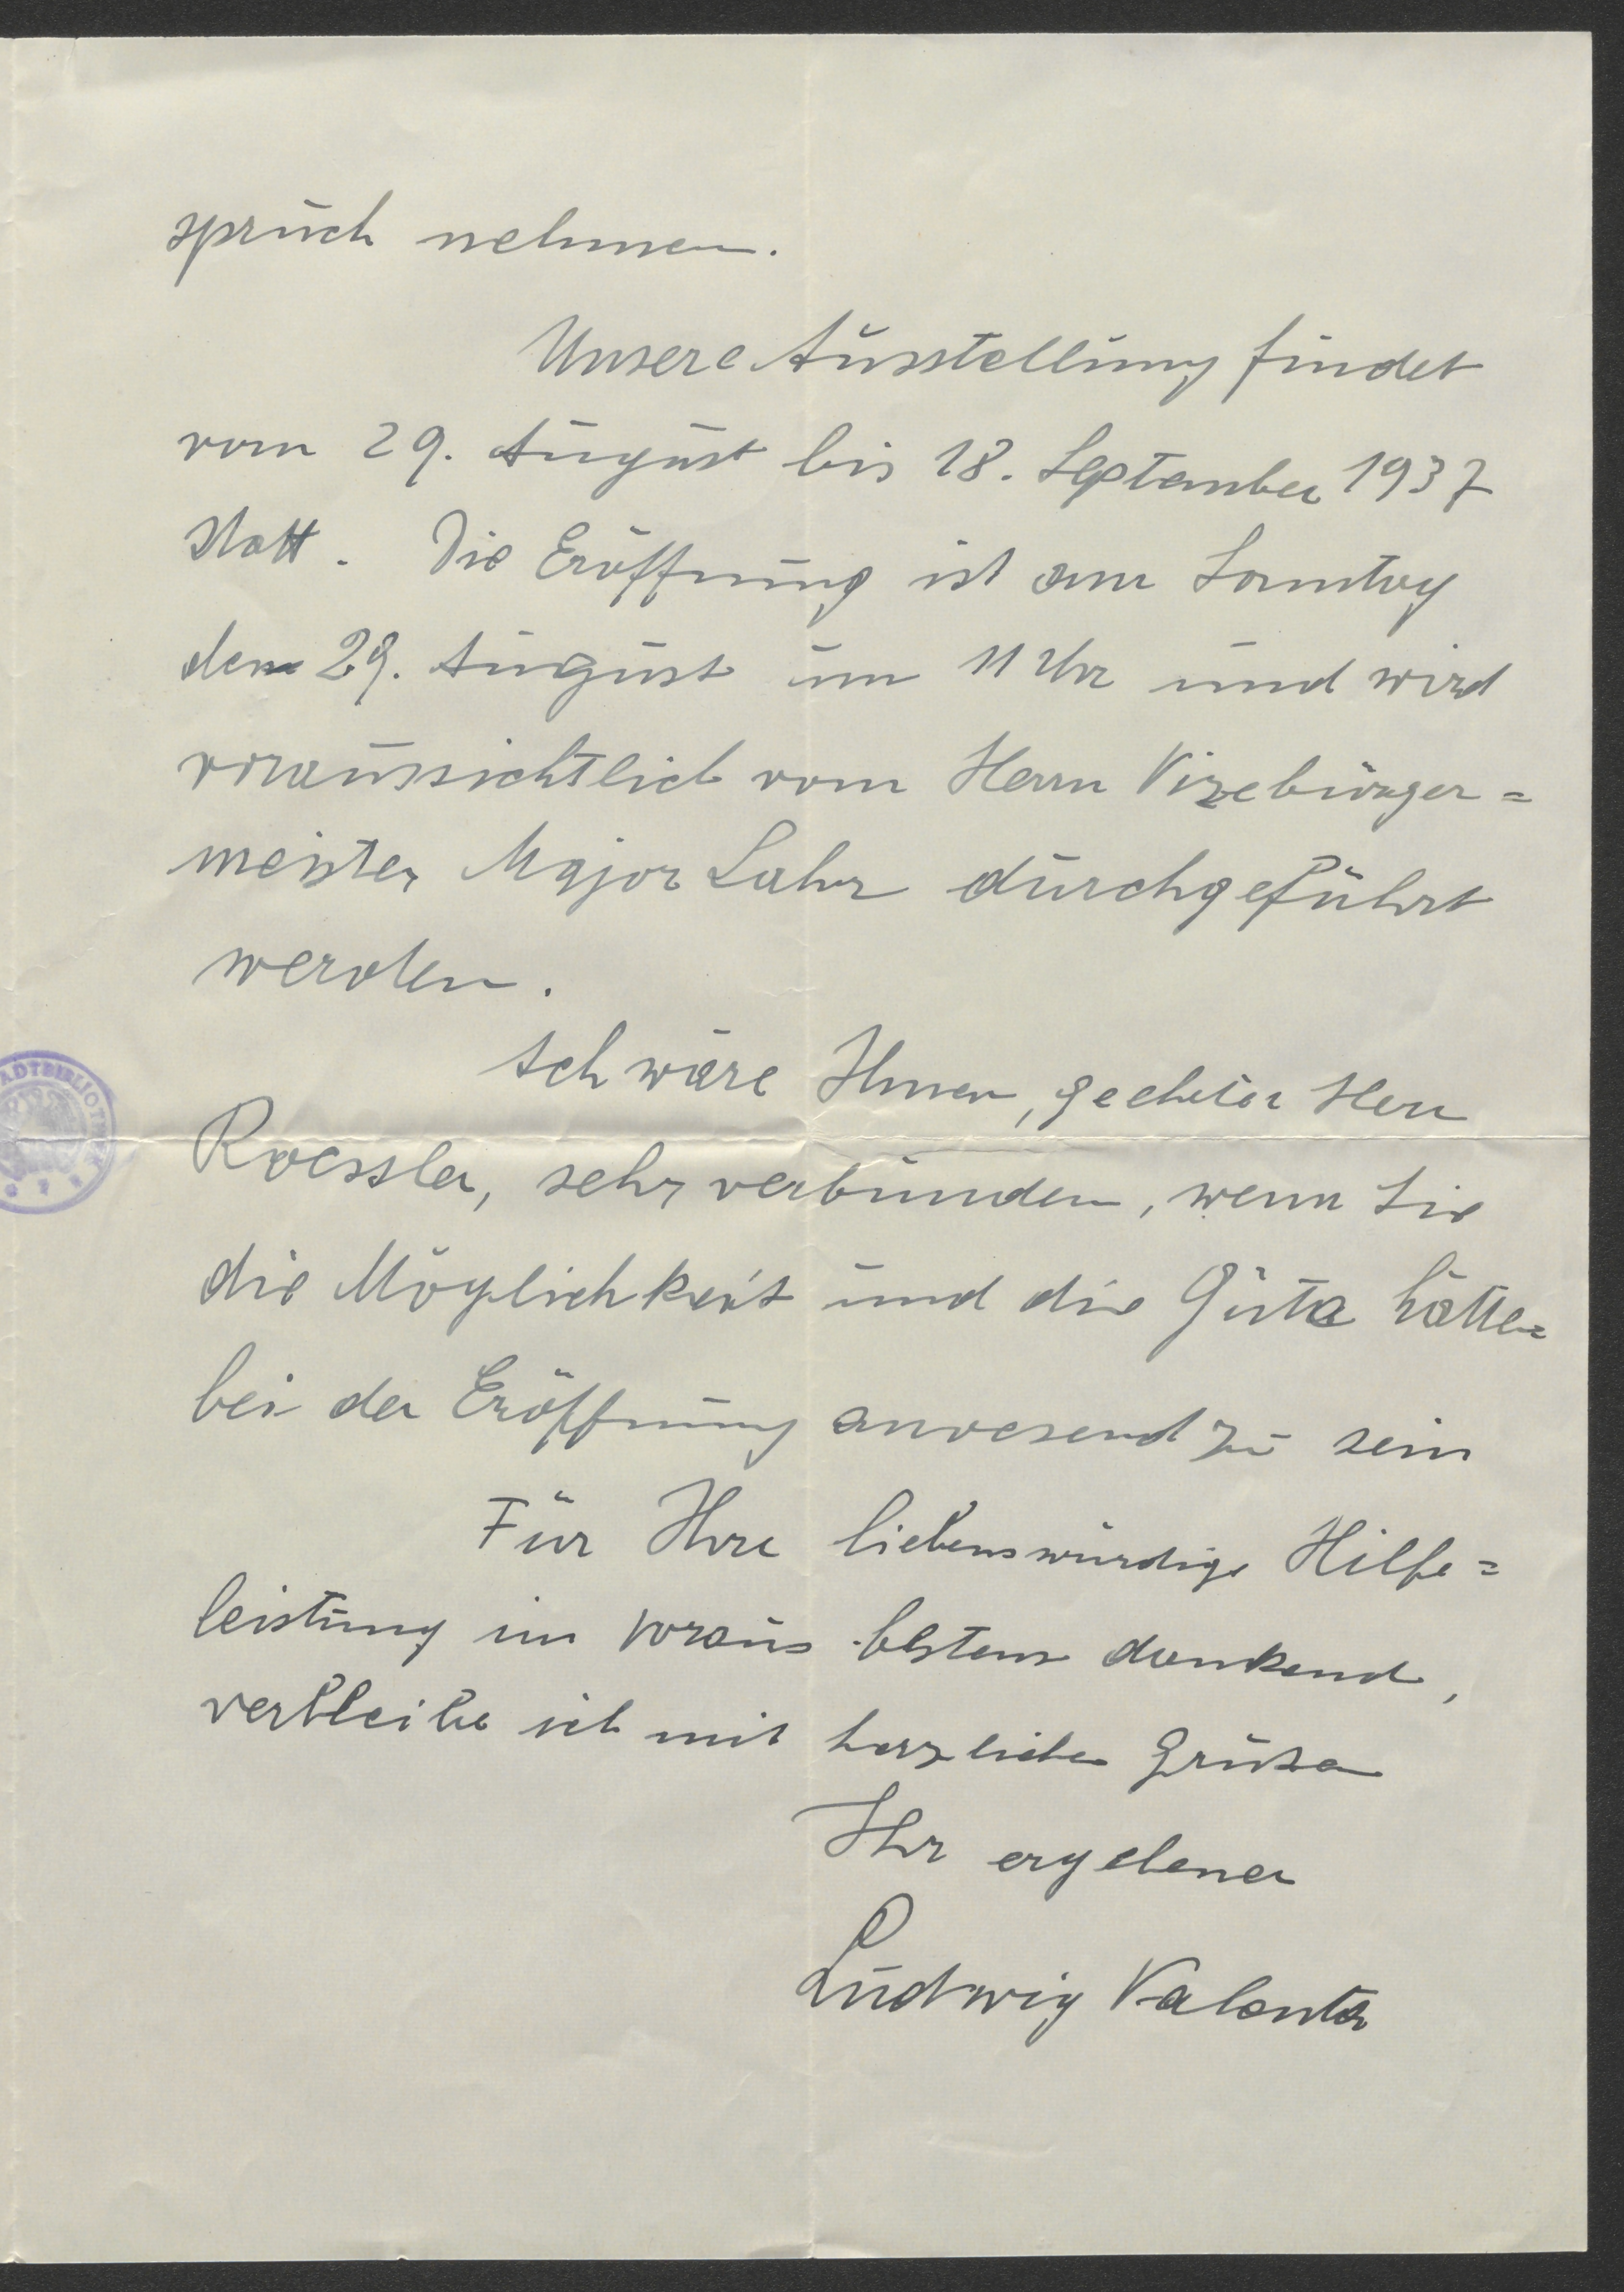 spruch nehmen.
Unsere Ausstellung findet
vom 29. August bis 18. September 1937
statt. Die Eröffnung ist am Sonntag
dem 29. August um 11 Uhr und wird
voraussichtlich vom Herrn Vizebürger=
meister Major Lahr durchgeführt
werden.
Ich wäre Ihnen, geehrter Herr
Roessler, sehr verbunden, wenn Sie
die Möglichkeit und die Güte hätten
bei der Eröffnung anwesend zu sein
Für Ihre liebenswürdige Hilfe=
leistung im voraus bestens dankend,
verbleibe ich mit herzlichen Grüßen
Ihr ergebener
Ludwig Valenta
ADTBIBLIOTHEK